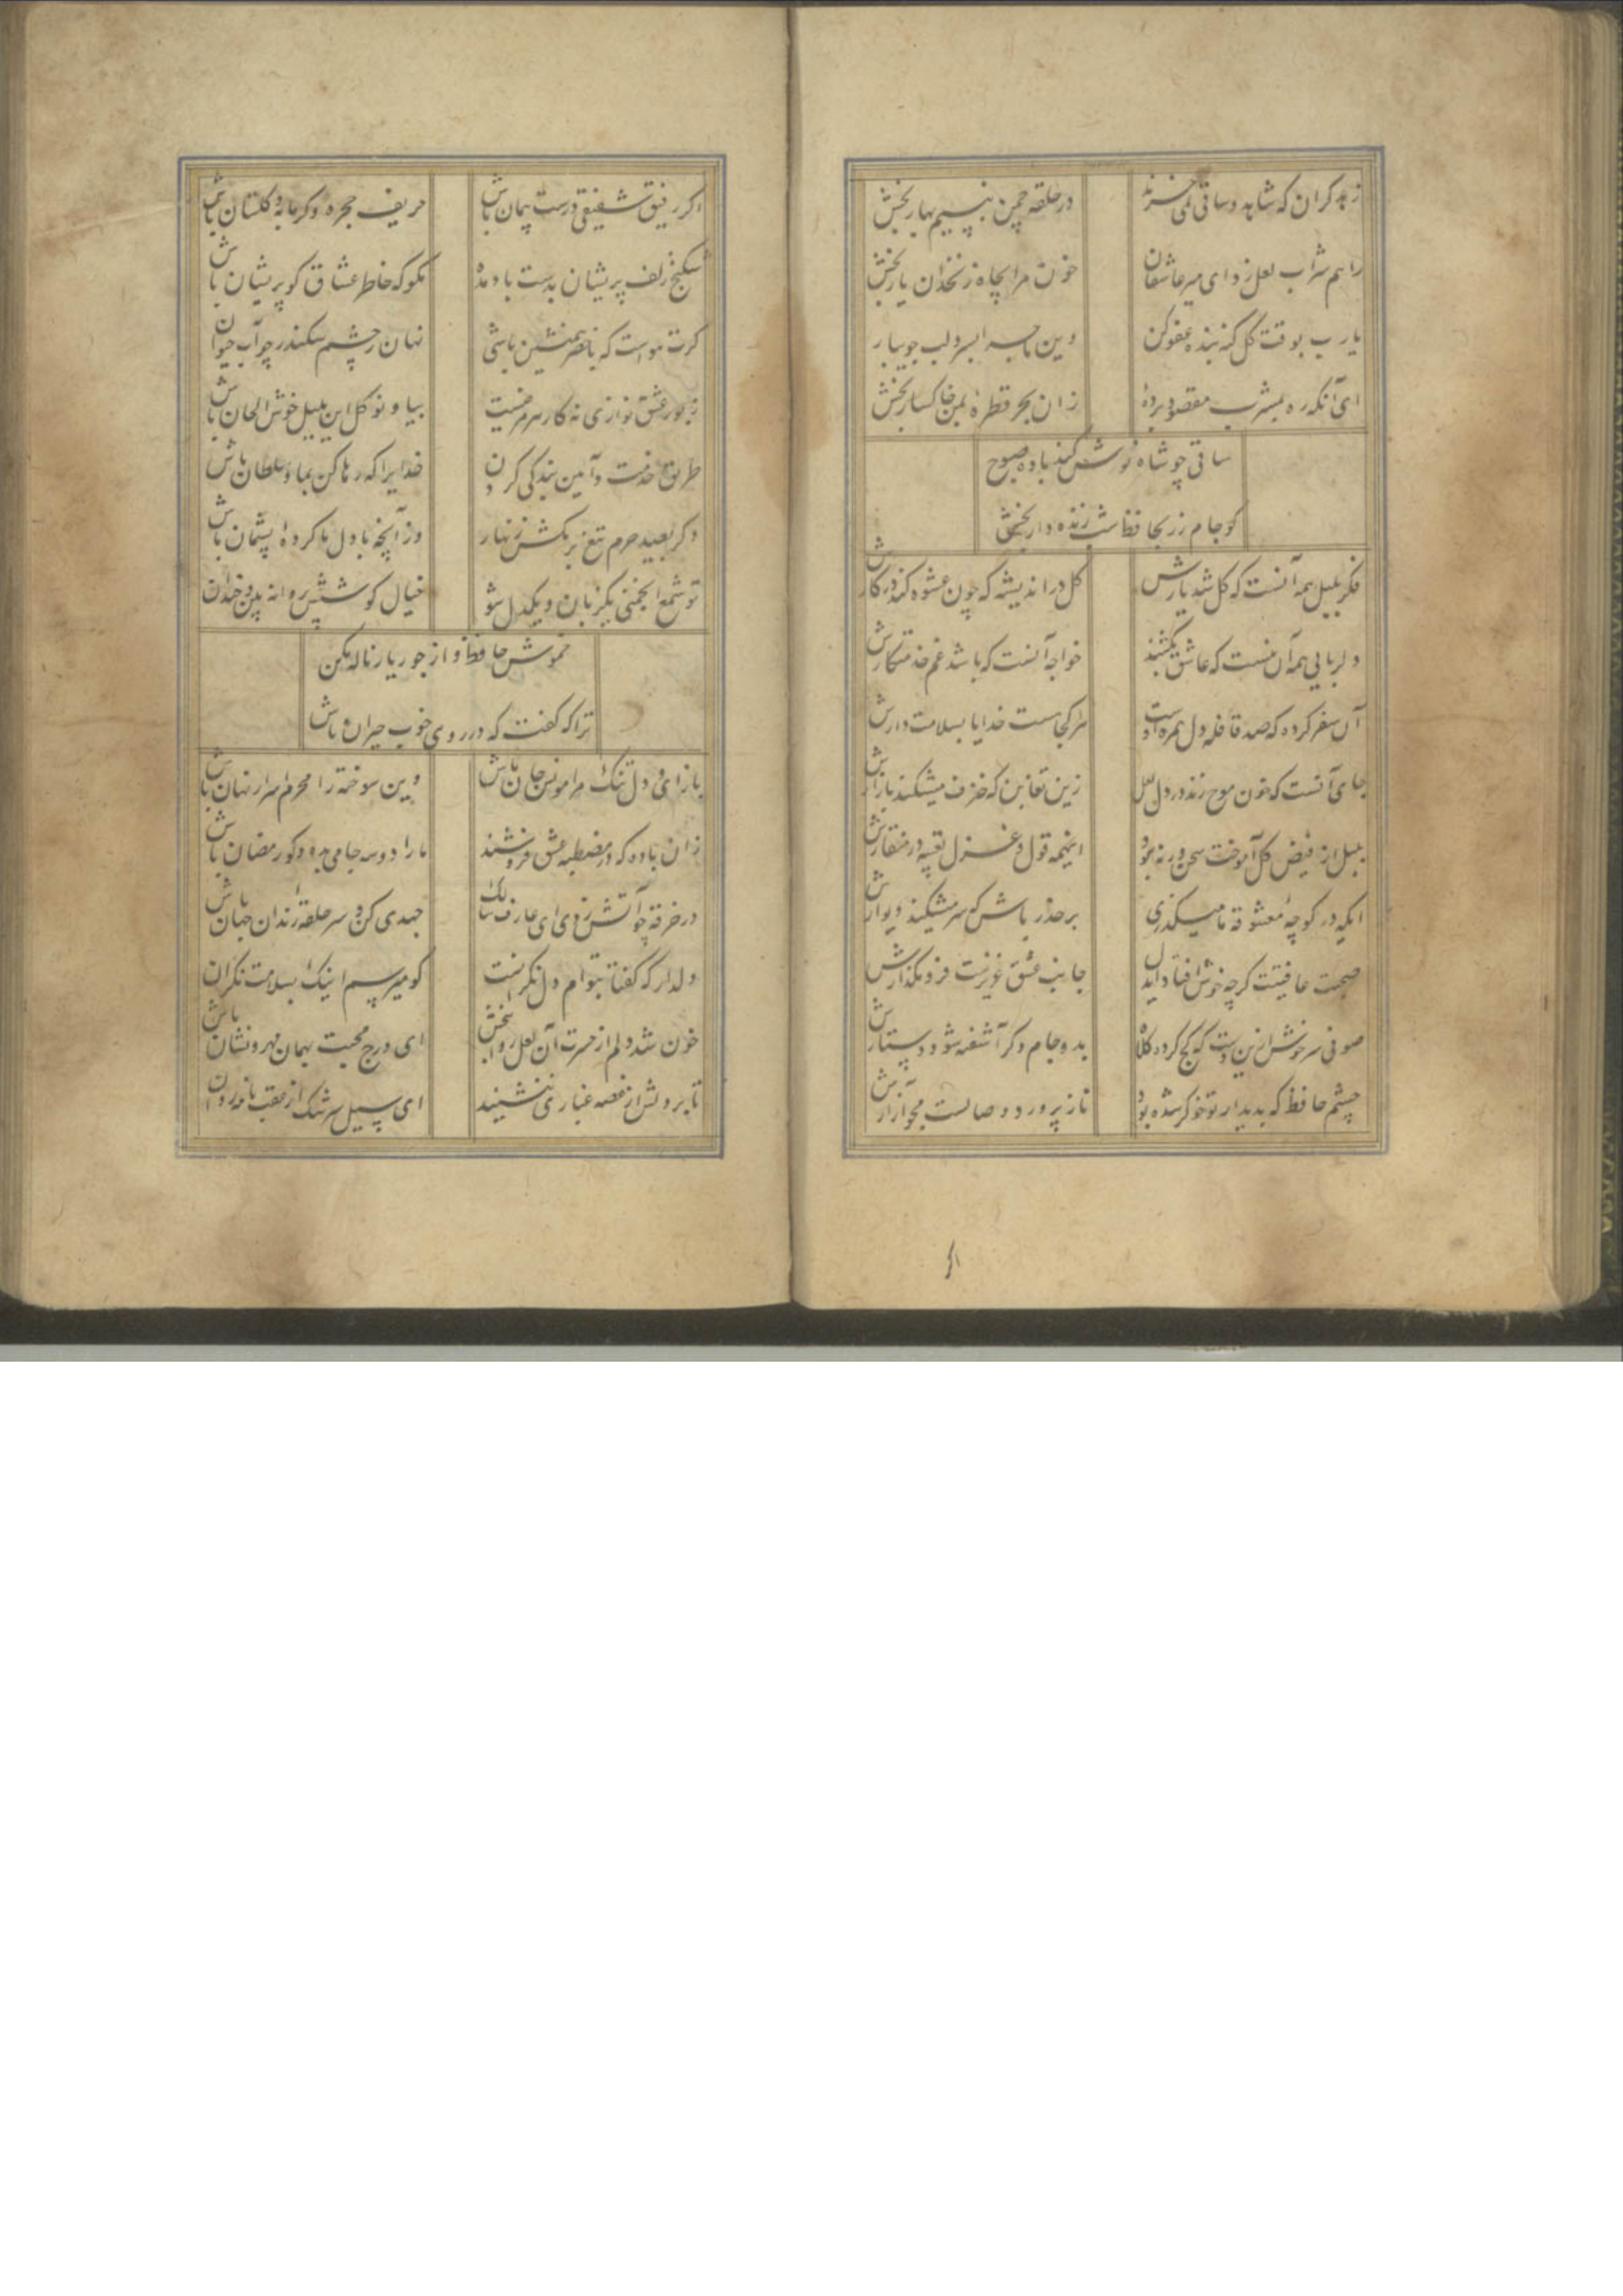 زهد گران که شاهد و ساقی نمی‌خرند
در حلقه چمن بنسیم بهار بخش
راهم شراب لعل زد ای میر عاشقان
خون مرا بچاه زنخدان یار بخش
یا رب بوقت گل گنه بنده عفو کن
وین ماجرا بسرو لب جویبار
ای آنکه ره بمشرب مقصود برده‌ٔ
زان بحر قطره‌ٔ بمن خاکسار بخش
ساقی چو شاه نوش کند باده صبوح
کو جام زر بحافظ شب زنده دار بخش
فکر بلبل همه آنست که گل شد یارش
گل در اندیشه که چون عشوه کند در کارش
دلربایی همه آن نیست که عاشق بکشند
خواجه آنست که باشد غم خدمتکارش
آن سفر کرده که صد قافله دل همره اوست
هر کجا هست خدایا بسلامت دارش
جای آنست که خون موج زند در دل لعل
زین تغابن که خزف میشکند بازارش
بلبل از فیض گل آموخت سخن ورنه نبود
اینهمه قول و غزل تعبیه در منقارش
ایکه در کوچه معشوقه ما میگذری
بر حذر باش که سر میشکند دیوارش
صحبت عافیتت گرچه خوش افتاد ایدل
جانب عشق عزیزست فرو مگذارش
صوفی سرخوش ازین دست که کج کرد کلاه
بدو جام دگر آشفته شود دستارش
چشم حافظ که بدیدار تو خوگر شده بود
ناز پرورد وصالست مجو آزارش
اگر
اگر رفیق شفیقی درست پیمان باش
حریف حجره و گرمابه و گلستان باش
شکنج زلف پریشان بدست باد مده
مگو که خاطر عشاق گو پریشان باش
گرت هواست که با خضر همنشین باشی
نهان ز چشم سکندر چو آب حیوان
زبور عشق نوازی نه کار هر مرغیست
بیا و نو گل این بلبل خوش الحان باش
طریق خدمت و آیین بندگی کردن
خدایرا که رها کن بما و سلطان باش
دگر بصید حرم تیغ بر مکش زنهار
وز آنچه با دل ما کرده‌ٔ پشیمان باش
تو شمع انجمنی یکزبان و یکدل شو
خیال کوشش پروانه بین و خندان
خموش حافظ و از جور یار ناله مکن
ترا که گفت که در روی خوب حیران باش
باز آی و دل تنگ مرا مونس جان باش
وین سوخته را محرم اسرار نهان باش
زان باده که در مصطبه عشق فروشند
ما را دو سه جامی بده و گو رمضان باش
در خرقه چو آتش زدی ای عارف سالک
جهدی کن و سر حلقهٔ رندان جهان باش
دلدار که گفتا بتوام دل نگرانست
گو میرسم اینک بسلامت نگران
باش
خون شد دلم از حسرت آن لعل روان بخش
ای درج محبت بهمان مهر و نشان
تا بر دلش از غصه غباری ننشیند
ای سیل سرشک از عقب نامه روان